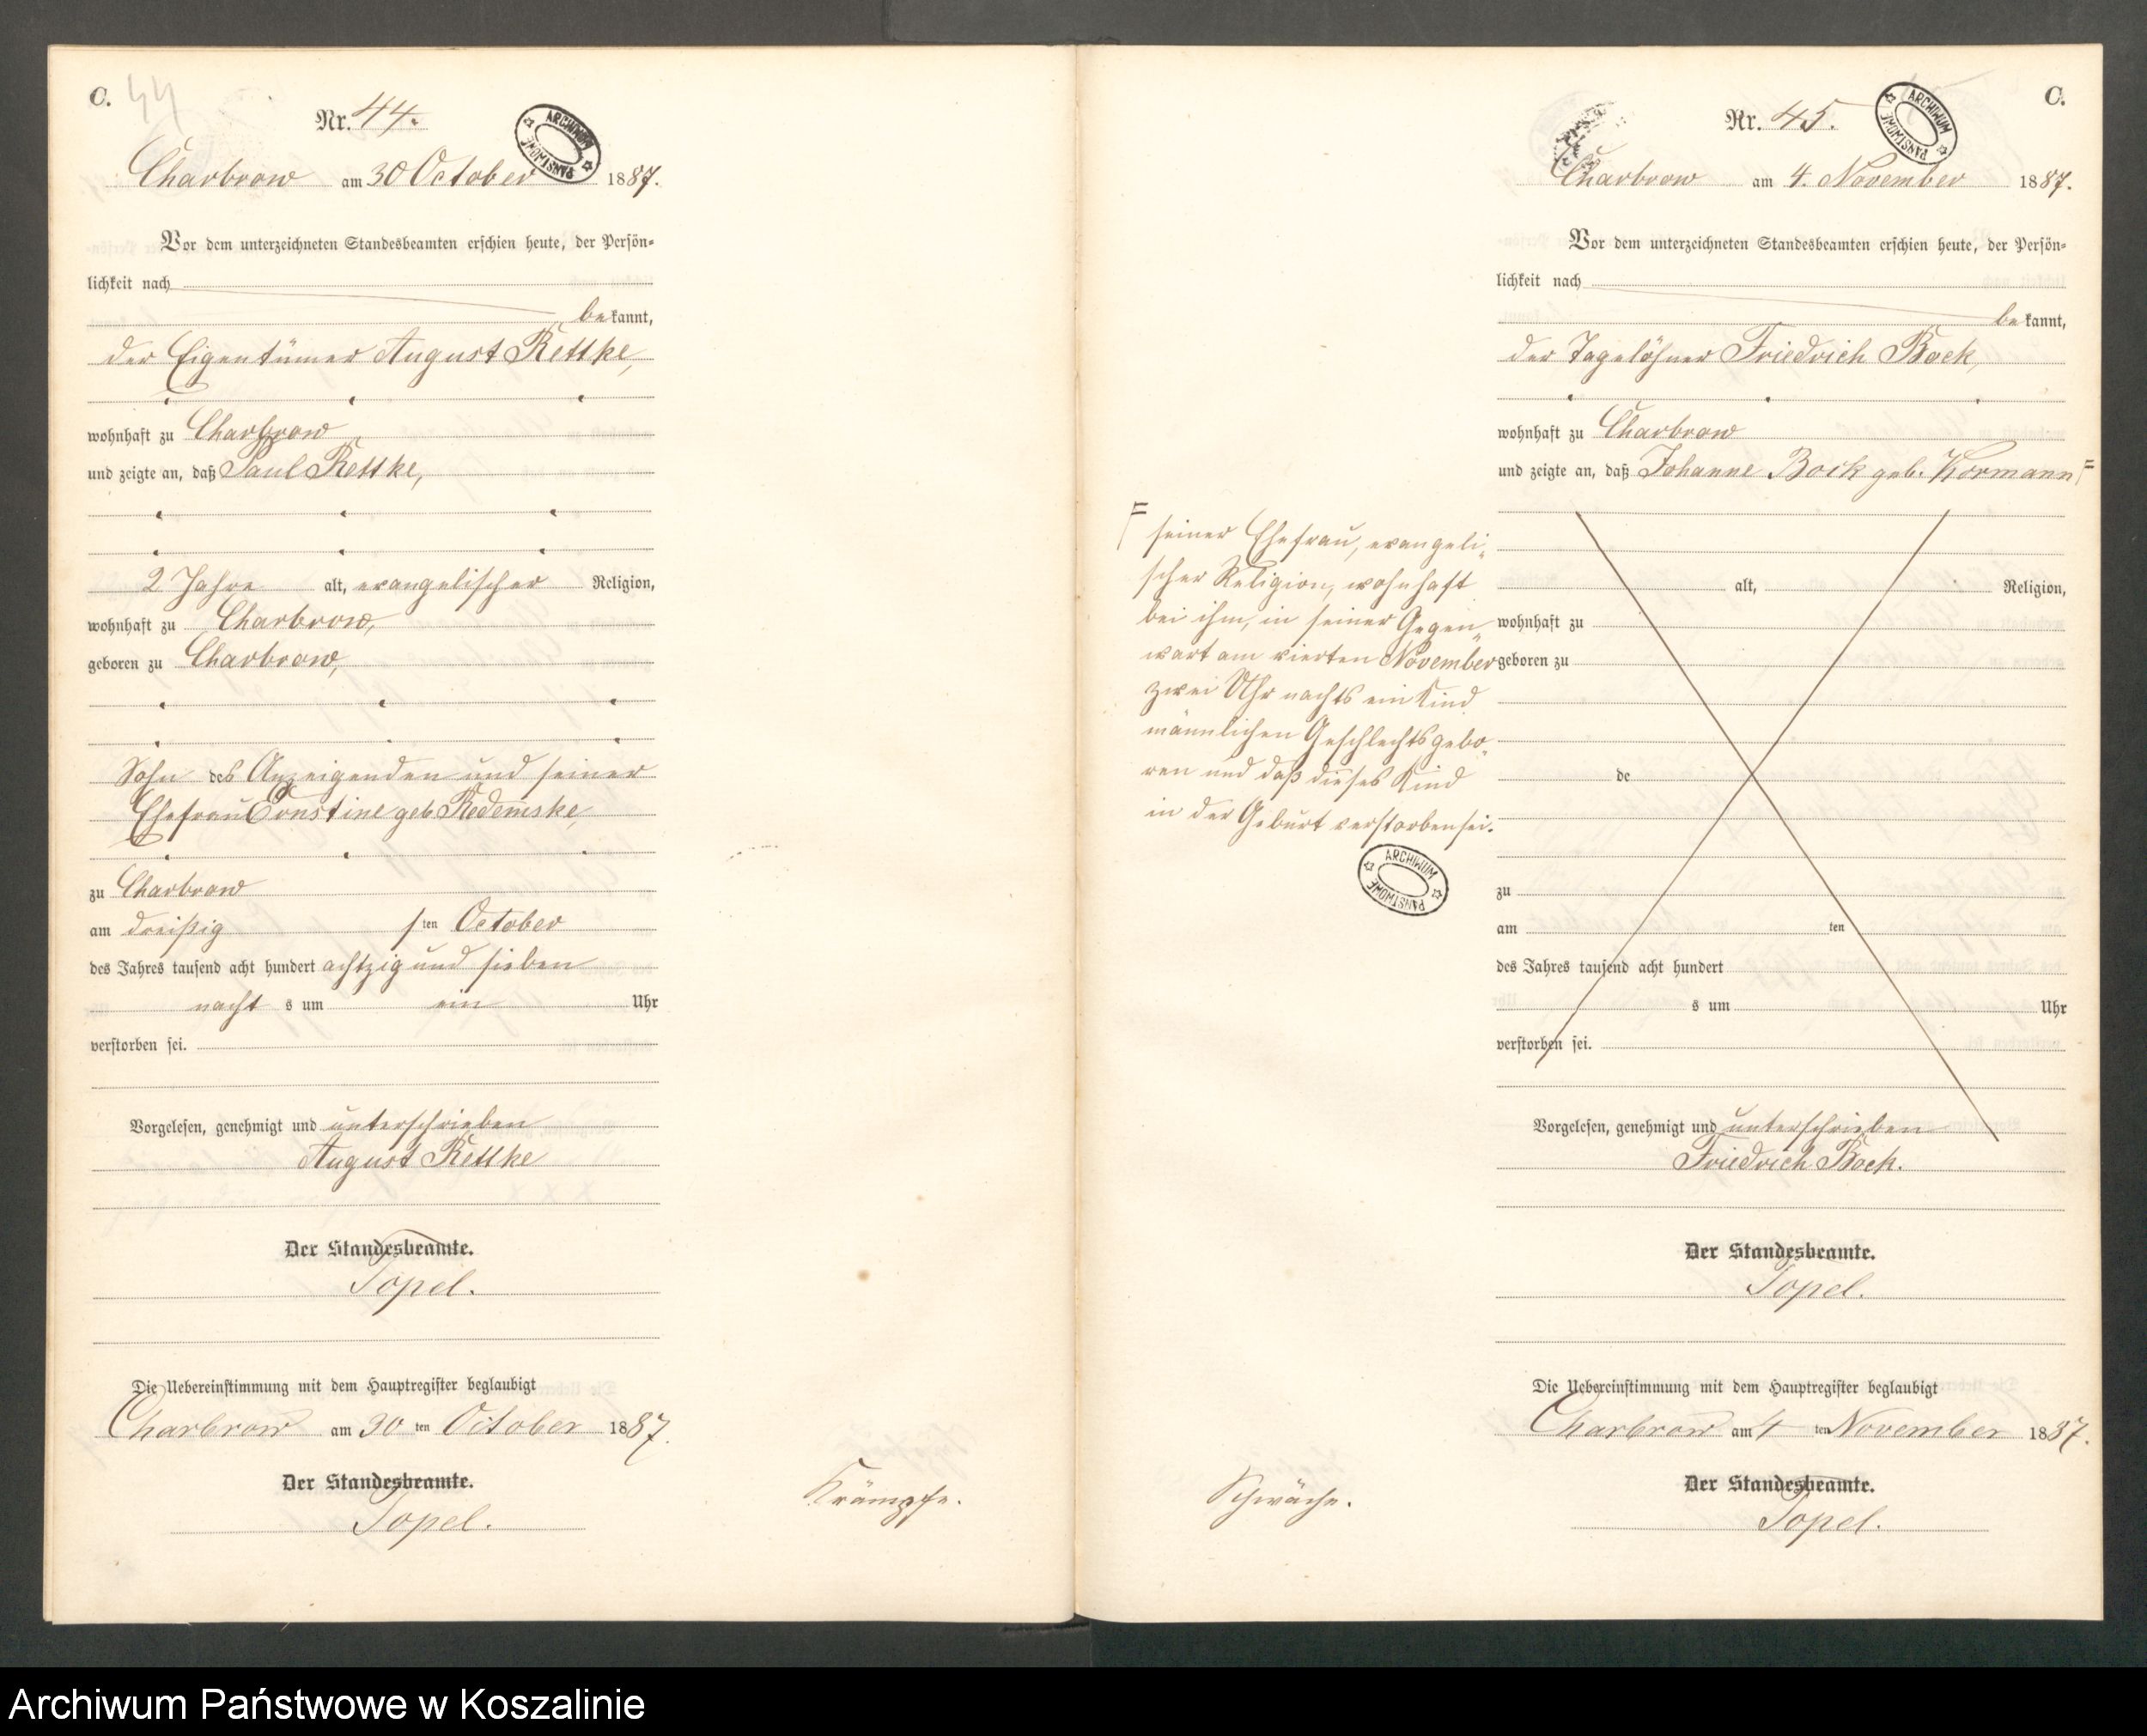 C. 44
Nr. 44.
ARCHIWUM PAŃSTWOWE
Charbrow am 30 October 1887.
Vor dem unterzeichneten Standesbeamten erschien heute, der Persön=
lichkeit nach
bekannt,
der Eigentümer August Rettke,
wohnhaft zu Charbrow
und zeigte an, daß Paul Rettke,
2 Jahre alt, evangelischer Religion,
wohnhaft zu Charbrow,
geboren zu Charbrow,
Sohn des Anzeigenden und seiner
Ehefrau Ernstine geb
zu Charbrow
am dreißig sten October
des Jahres tausend acht hundert achtzig und sieben
nacht s um ein Uhr
verstorben sei.
Vorgelesen, genehmigt und unterschrieben
August Rettke
Der Standesbeamte.
Topel.
Die Uebereinstimmung mit dem Hauptregister beglaubigt
Charbrow am 30 ten October 1887.
Der Standesbeamte.
Topel.
Krämpfe.
C.
Nr. 45.
ARCHIWUM PAŃSTWOWE
Charbrow am 4. November 1887.
Vor dem unterzeichneten Standesbeamten erschien heute, der Persön=
lichkeit nach
bekannt,
der Tagelöhner Friedrich Bock,
wohnhaft zu Charbrow
und zeigte an, daß Johanne Bock geb. Kormann
seiner Ehefrau, evangeli=
scher Religion, wohnhaft
bei ihm, in seiner Gegen=
wart am vierten November
zwei Uhr nachts ein Kind
männlichen Geschlechts gebo=
ren und daß dieses Kind
in der Geburt verstorben sei.
ARCHIWUM PAŃSTWOWE
alt, Religion,
wohnhaft zu
geboren zu
de
zu
am ten
des Jahres tausend acht hundert
s um Uhr
verstorben sei.
Vorgelesen, genehmigt und unterschrieben
Friedrich Bock.
Der Standesbeamte.
Topel.
Die Uebereinstimmung mit dem Hauptregister beglaubigt
Charbrow am 4 ten November 1887.
Der Standesbeamte.
Topel.
Schwäche.
Archiwum Państwowe w Koszalinie